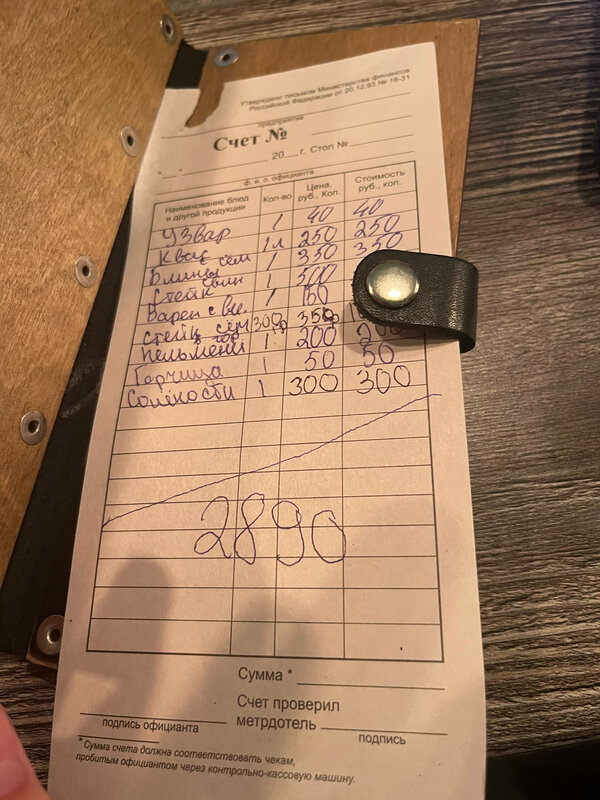 Утверждено письмом Министерства финансов
Российской Федерации от 20.12.93 № 16-31
предприятие
Счет №
20 г. Стол №
ф. и. о. официанта
Наименование блюд и другой продукции Кол-во Цена, руб., Коп. Стоимость руб., коп.
Узвар 1 40 40
Квас 1л 250 250
Блины сём 1 350 350
Стейк свин 1 500
Варен с ви. 1 150
Стейк сём 300гр 350
Пельмени 1 200 200
Горчица 1 50 50
Солёности 1 300 300
2890
Сумма *
Счет проверил
метрдотель
подпись официанта
подпись
* Сумма счета должна соответствовать чекам,
пробитым официантом через контрольно-кассовую машину.